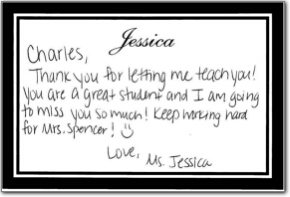 Jessica
Charles,
Thank you for letting me teach you!
You are a great student and I am going
to miss you so much! Keep working hard
for Mrs. Spencer!
Love,
Ms. Jessica